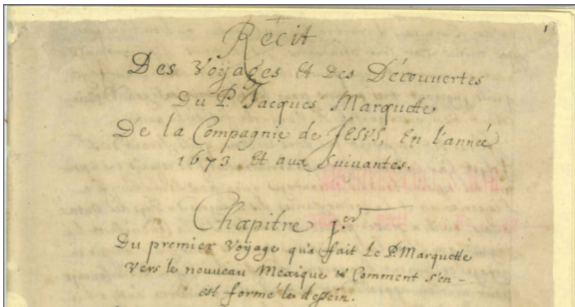 1
Récit
Des Voyages Et des Découvertes
Du P. Jacques Marquette
De la Compagnie de JESUS, En l'année
1673 Et aux Suivantes.
Chapitre 1.er
Du premier Voyage qu'a fait Le P. Marquette
Vers le nouveau Mexique & Comment s'en
est formé le dessein.